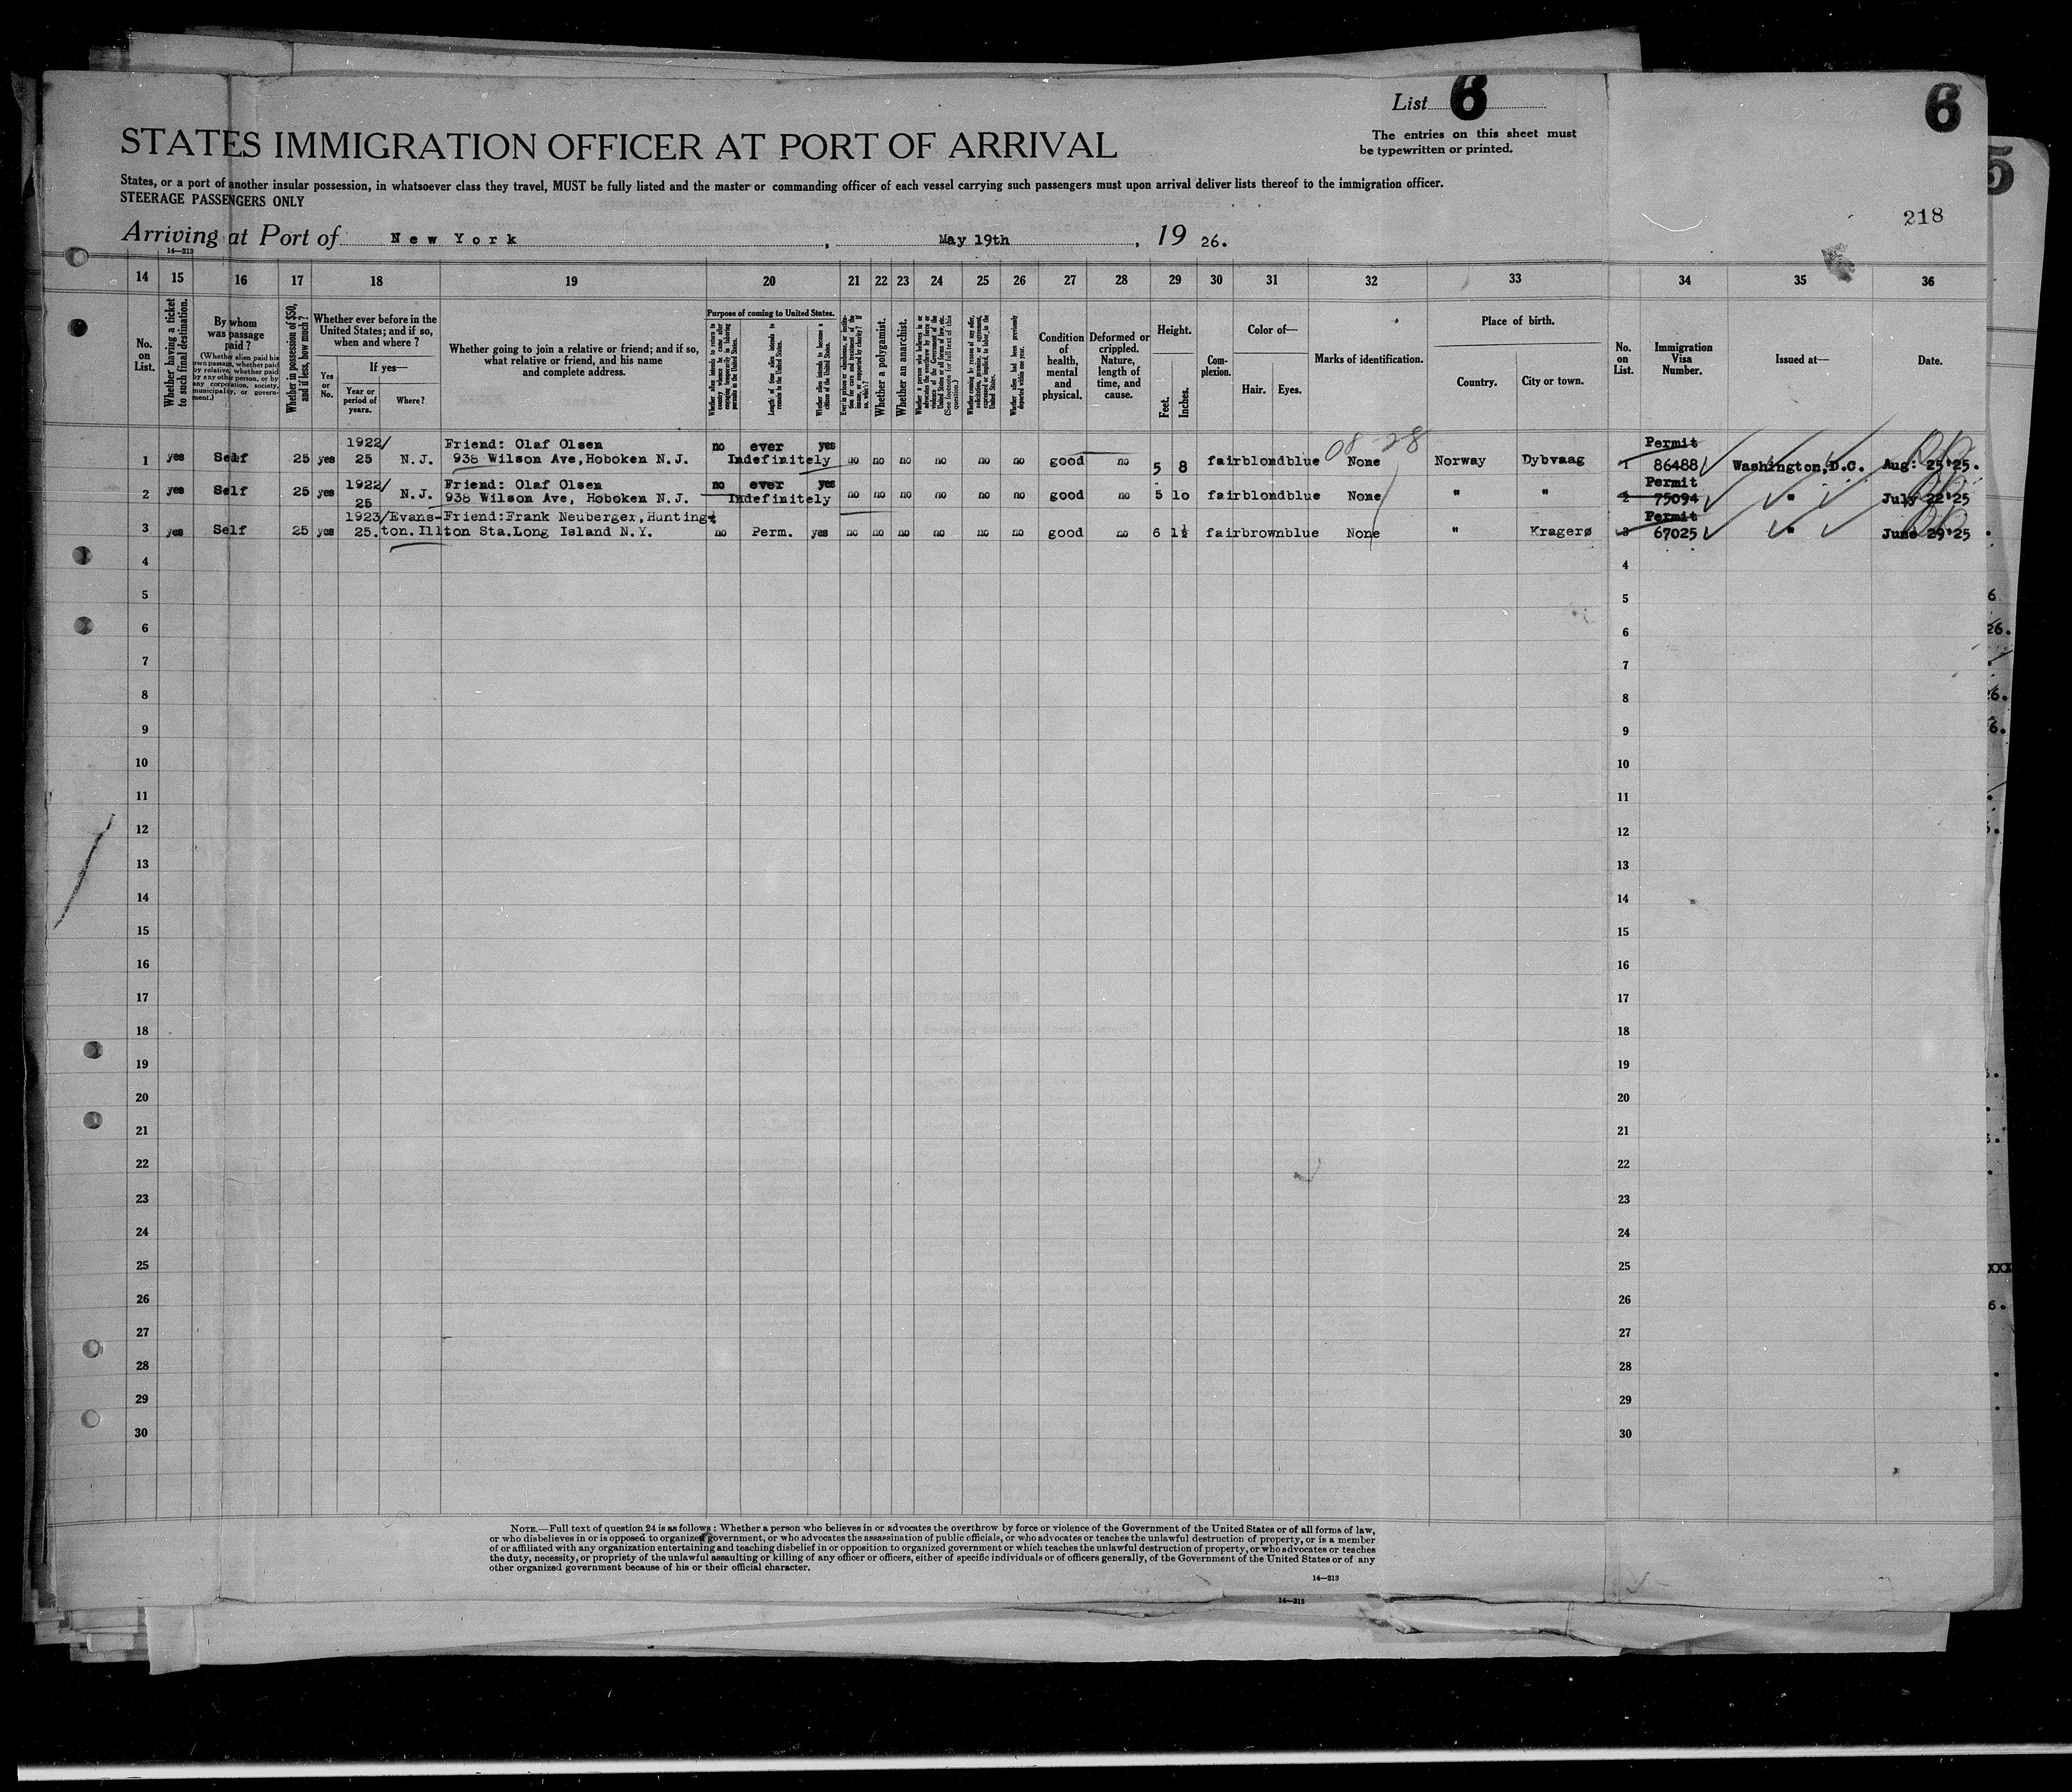 List 6
6
The entries on this sheet must
be typewritten or printed.
STATES IMMIGRATION OFFICER AT PORT OF ARRIVAL
States, or a port of another insular possession, in whatsoever class they travel, MUST be fully listed and the master or commanding officer of each vessel carrying such passengers must upon arrival deliver lists thereof to the immigration officer.
STEERAGE PASSENGERS ONLY
5
218
Arriving at Port of New York, May 19th, 19 26.
14—213
14 15 16 17 18 19 20 21 22 23 24 25 26 27 28 29 30 31 32 33 34 35 36
No. on List.
Whether having a ticket to such final destination.
By whom was passage paid?
(Whether alien paid his own passage, whether paid by relative, whether paid by any other person, or by any corporation, society, municipality, or government.)
Whether in possession of $50, and if less, how much?
Whether ever before in the United States; and if so, when and where?
Yes or No.
If yes—
Year or period of years.
Where?
Whether going to join a relative or friend; and if so, what relative or friend, and his name and complete address.
Purpose of coming to United States.
Whether alien intends to return to country whence he came after engaging temporarily in laboring pursuits in the United States.
Length of time alien intends to remain in the United States.
Whether alien intends to become a citizen of the United States.
Whether a polygamist.
Whether an anarchist.
Condition of health, mental and physical.
Deformed or crippled. Nature, length of time, and cause.
Height.
Feet.
Inches.
Complexion.
Color of—
Hair.
Eyes.
Marks of identification.
Place of birth.
Country.
City or town.
No. on List.
Immigration Visa Number.
Issued at—
Date.
08-28
1 yes Self 25 yes 1922/25 N.J. Friend: Olaf Olsen 938 Wilson Ave, Hoboken N.J. no ever yes Indefinitely no no no no no no good no 5 8 fair blond blue None Norway Dybvaag 1 Permit 86488 Washington, D.C. Aug: 25'25.
2 yes Self 25 yes 1922/25 N.J. Friend: Olaf Olsen 938 Wilson Ave, Hoboken N.J. no ever yes Indefinitely no no no no no no good no 5 10 fair blond blue None " " 2 Permit 75094 " July 22'25
3 yes Self 25 yes 1923/25. Evanston. Ill Friend: Frank Neuberger, Huntington Sta. Long Island N.Y. no Perm. yes no no no no no no good no 6 1½ fair brown blue None " Kragerø 3 Permit 67025 " June 29'25
4 4
5 5
6 6
7 7
8 8
9 9
10 10
11 11
12 12
13 13
14 14
15 15
16 16
17 17
18 18
19 19
20 20
21 21
22 22
23 23
24 24
25 25
26 26
27 27
28 28
29 29
30 30
NOTE.—Full text of question 24 is as follows: Whether a person who believes in or advocates the overthrow by force or violence of the Government of the United States or of all forms of law,
or who disbelieves in or is opposed to organized government, or who advocates the assassination of public officials, or who advocates or teaches the unlawful destruction of property, or is a member
of or affiliated with any organization entertaining and teaching disbelief in or opposition to organized government or which teaches the unlawful destruction of property, or who advocates or teaches
the duty, necessity, or propriety of the unlawful assaulting or killing of any officer or officers, either of specific individuals or of officers generally, of the Government of the United States or of any
other organized government because of his or their official character.
14—213
14—213